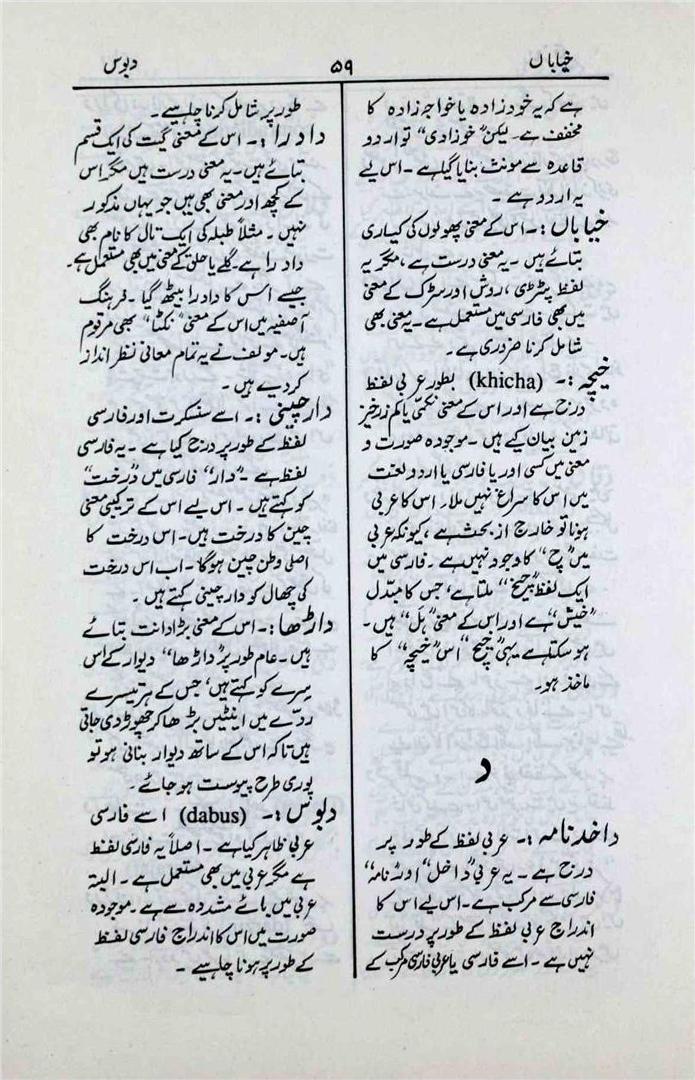 خیاباں ۵۹ دبوس
ہے کہ یہ خود زادہ یا خواجہ زادہ کا
مخفف ہے۔ لیکن ”خوزادی“ تو اردو
قاعدہ سے مونث بنایا گیا ہے۔ اس لیے
یہ اردو ہے۔
خیاباں :۔ اس کے معنی پھولوں کی کیاری
بتائے ہیں۔ یہ معنی درست ہے، مگر یہ
لفظ پٹڑی، روش اور سڑک کے معنی
میں بھی فارسی میں مستعمل ہے۔ یہ معنی بھی
شامل کرنا ضروری ہے۔
خیچہ :۔ (khicha) بطور عربی لفظ
درج ہے اور اس کے معنی نکمّی یا کم زرخیز
زمین بیان کیے ہیں۔ موجودہ صورت و
معنی میں کسی اور یا فارسی یا اردو لغت
میں اس کا سراغ نہیں ملا۔ اس کا عربی
ہونا تو خارج از بحث ہے، کیونکہ عربی
میں ”چ“ کا وجود نہیں ہے۔ فارسی میں
ایک لفظ ”خیچ“ ملتا ہے، جس کا مبدّل
”خیش“ ہے اور اس کے معنی ”ہل“ ہیں۔
ہو سکتا ہے یہی ”خیچ“ اس ”خیچہ“ کا
ماخذ ہو۔
د
داخد نامہ :۔ عربی لفظ کے طور پر
درج ہے۔ یہ عربی ”داخل“ اور ”نامہ“
فارسی سے مرکب ہے۔ اس لیے اس کا
اندراج عربی لفظ کے طور پر درست
نہیں ہے۔ اسے فارسی یا عربی فارسی مرکب کے
طور پر شامل کرنا چاہیے۔
دادرا :۔ اس کے معنی گیت کی ایک قسم
بتائے ہیں۔ یہ معنی درست ہیں مگر اس
کے کچھ اور معنی بھی ہیں جو یہاں مذکور
نہیں۔ مثلاً طبلہ کی ایک تال کا نام بھی
دادرا ہے۔ گلے یا حلق کے معنی میں بھی مستعمل ہے۔
جیسے اس کا دادرا بیٹھ گیا۔ فرہنگ
آصفیہ میں اس کے معنی ”نکٹا“ بھی مرقوم
ہیں۔ مولف نے یہ تمام معانی نظر انداز
کر دیے ہیں۔
دار چینی :۔ اسے سنسکرت اور فارسی
لفظ کے طور پر درج کیا ہے۔ یہ فارسی
لفظ ہے۔ ”دار“ فارسی میں ”درخت“
کو کہتے ہیں۔ اس لیے اس کے ترکیبی معنی
چین کا درخت ہیں۔ اس درخت کا
اصلی وطن چین ہوگا۔ اب اس درخت
کی چھال کو دار چینی کہتے ہیں۔
داڑھا :۔ اس کے معنی بڑا دانت بتائے
ہیں۔ عام طور پر ”داڑھا“ دیوار کے اس
سرے کو کہتے ہیں، جس کے ہر تیسرے
ردّے میں اینٹیں بڑھا کر چھوڑ دی جاتی
ہیں تاکہ اس کے ساتھ دیوار بنانی ہو تو
پوری طرح پیوست ہو جائے۔
دبوس :۔ (dabus) اسے فارسی
عربی ظاہر کیا ہے۔ اصلاً یہ فارسی لفظ
ہے مگر عربی میں بھی مستعمل ہے۔ البتہ
عربی میں بائے مشددہ سے ہے۔ موجودہ
صورت میں اس کا اندراج فارسی لفظ
کے طور پر ہونا چاہیے۔